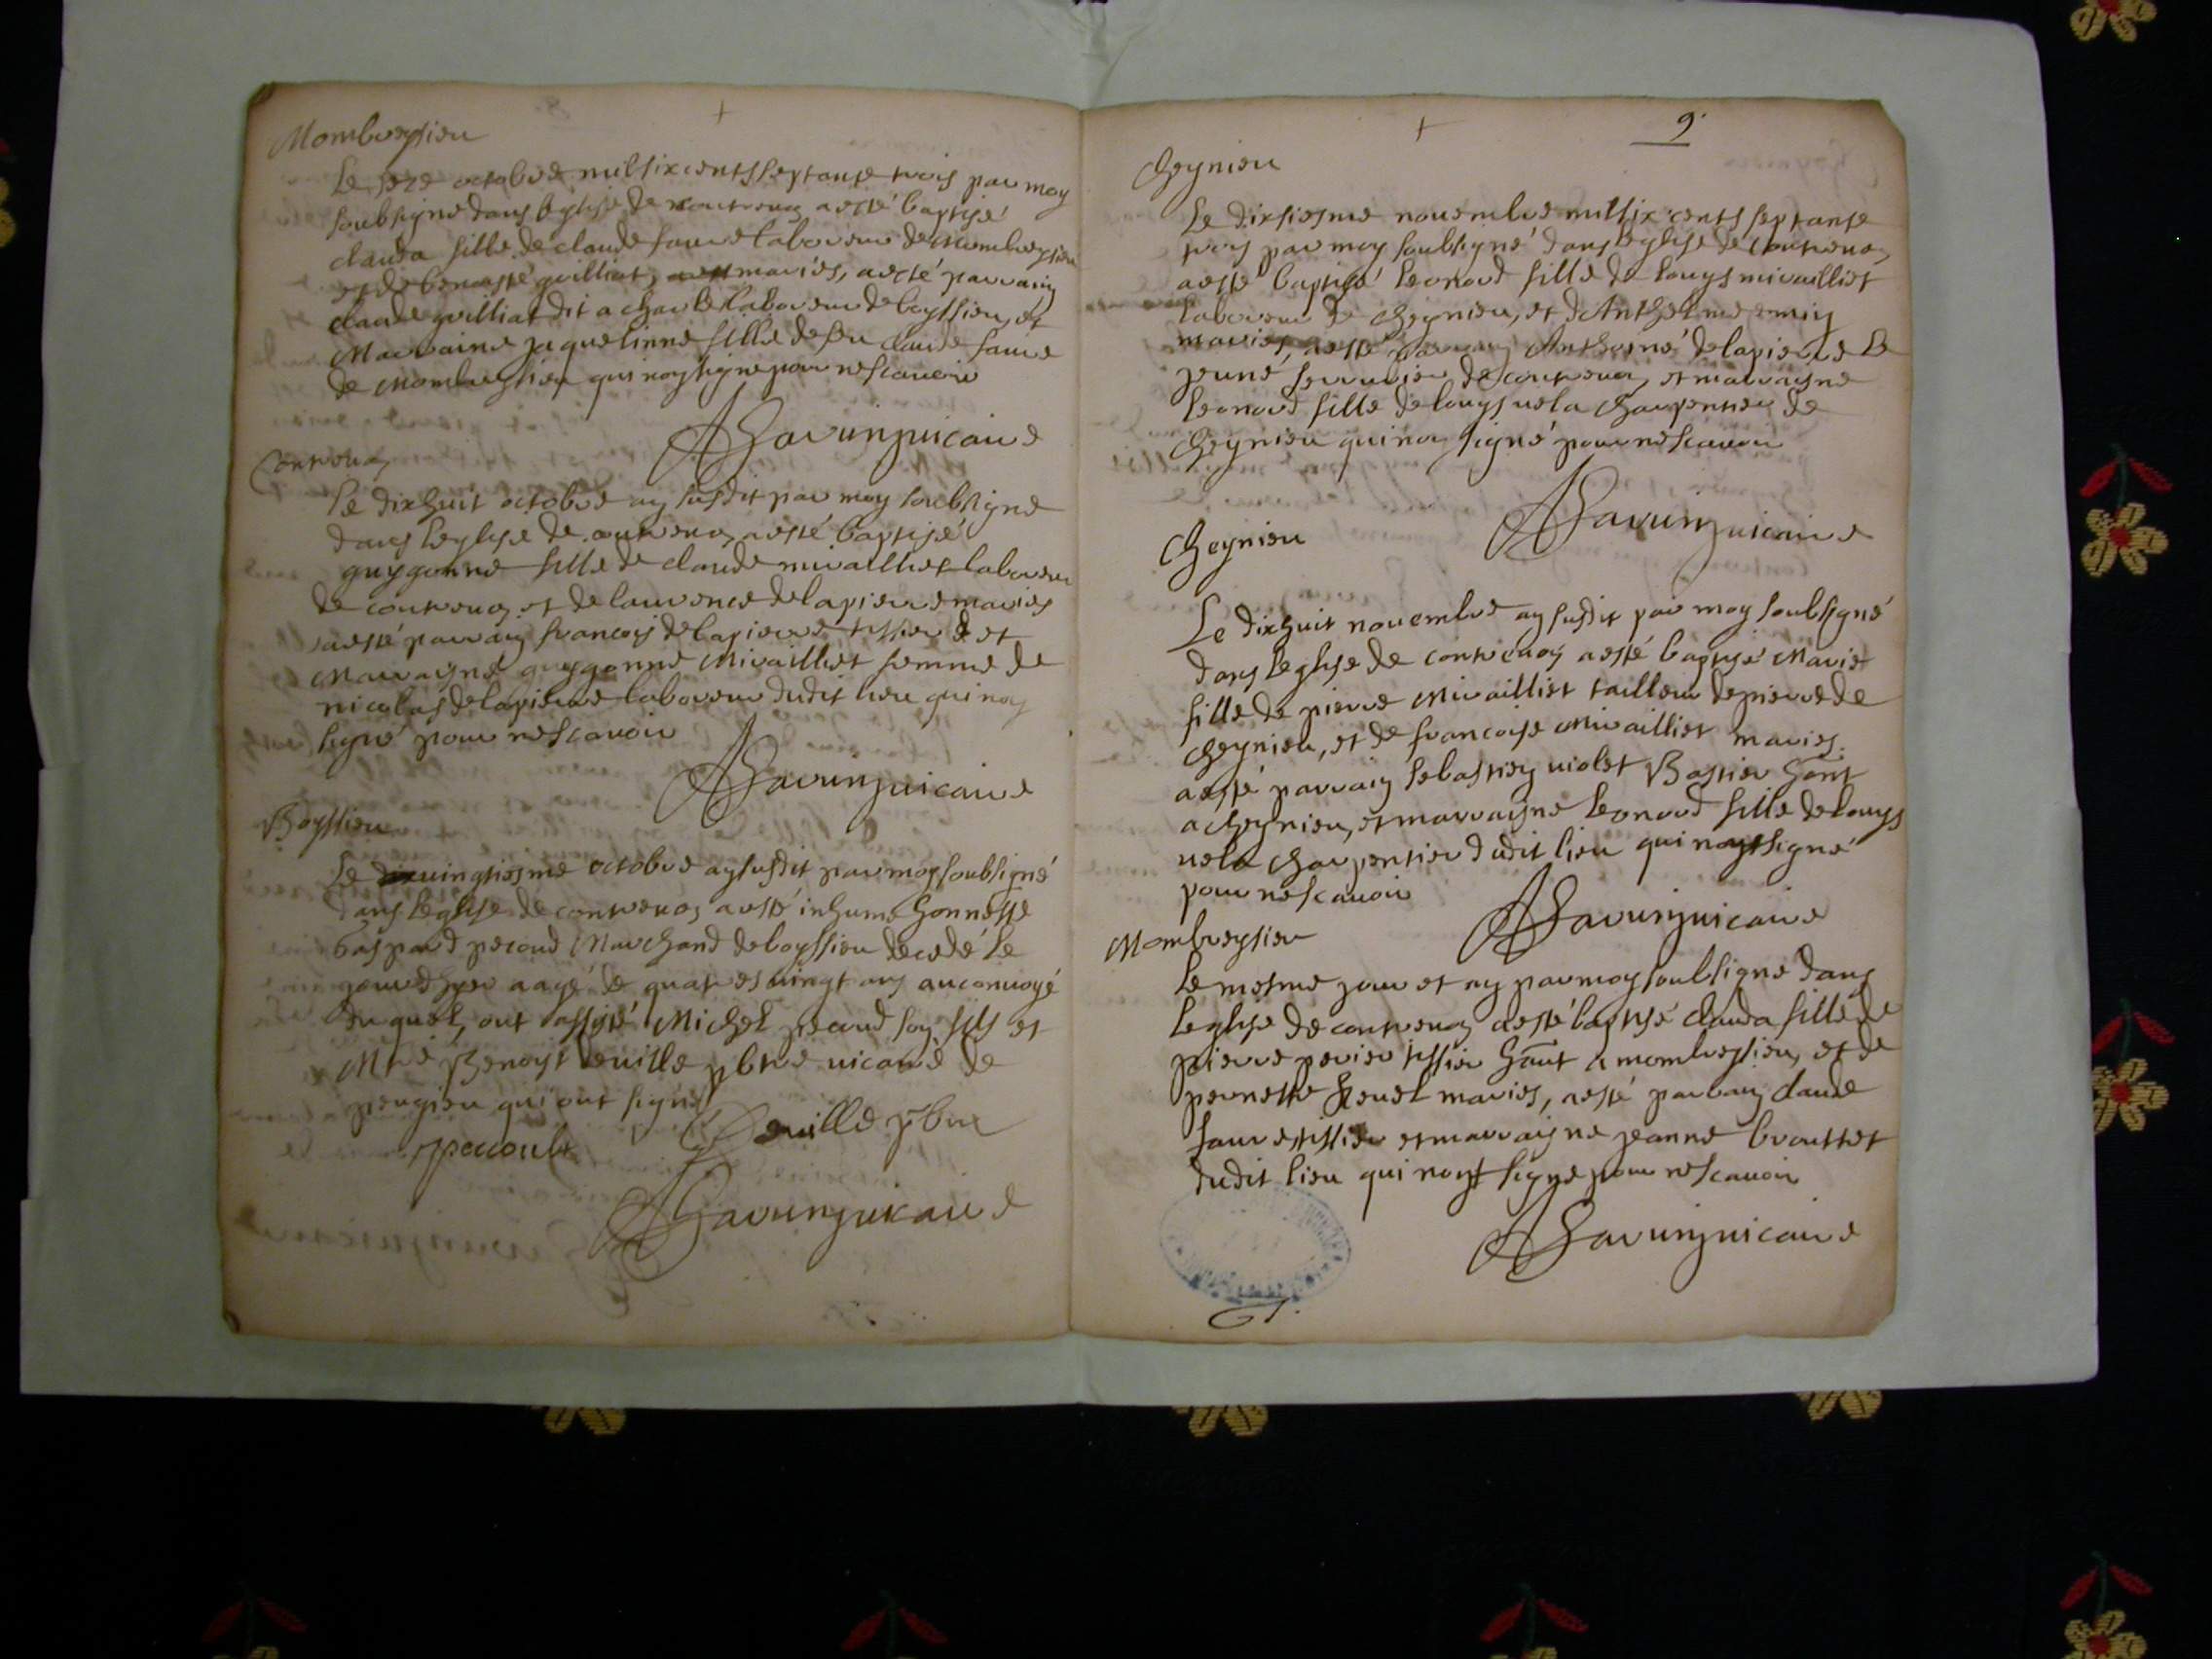 Mombreysieu
Le seze octobre mil six cents septante trois par moy
soubsigne dans leglise de contrevoz a esté baptisé
clauda fille de claude faure laboreur de Mombreysieu
et de benoiste guilliat mariés, a esté parrain
claude guilliat dit a charle laboreur de boyssieu, et
Marraine jaquelinne fille de feu claude faure
de Mombreysieu qui nont signe pour ne scavoir
Savarin vicaire
Contrevoz
Le dixhuit octobre an susdit par moy soubsigne
dans leglise de contrevoz a esté baptisé
guygonne fille de claude miraillet laboreur
de contrevoz et de laurence delapierre mariés
a esté parrain francois delapierre tissier et
Marraigne guygonne Miraillet femme de
nicolas delapierre laboreur dudit lieu qui nont
signé pour ne scavoir
Savarin vicaire
Boyssieu
Le vingtiesme octobre an susdit par moy soubsigné
dans leglise de contrevoz a esté inhumé honneste
gaspard pecoud Marchand de boyssieu decedé le
jour dhyer aagé de quatre vingt ans au convoyé
duquel, ont assisté Michel pecoud son fils et
Mre Benoist deville pbtre vicaire de
peugieu qui ont signé
pecoult Deville pbre
Savarin vicaire
9
Cheynieu
Le dixsiesme novembre mil six cents septante
trois par moy soubsigné dans leglise de Contrevoz
a esté baptisé Leonard fille de louys miralliet
laboreur de cheynieu, et dAnthelme
mariés, a esté parrain Anthoine delapierre le
jeune serrurier de contrevoz, et marraigne
leonard fille de louys vela charpentier de
cheynieu qui nont signé pour ne scavoir
Savarin vicaire
Cheynieu
Le dixhuit novembre an susdit par moy soubsigné
dans leglise de contrevoz a esté baptisé Marie
fille de pierre Miralliet tailleur de pierre de
cheynieu, et de francoise Miralliet mariés.
a esté parrain sebastien violet Bastier hant
a cheynieu, et marraigne leonard fille de louys
vela charpentier dudit lieu qui nont signé
pour ne scavoir
Savarin vicaire
Mombreysieu
Le mesme jour et an par moy soubsigné dans
leglise de contrevoz a esté baptisé clauda fille de
pierre perier tissier hant a mombreysieu, et de
pernette mariés, a esté parrain claude
faure tissier et marraigne jeanne brouttet
dudit lieu qui nont signe pour ne scavoir
Savarin vicaire